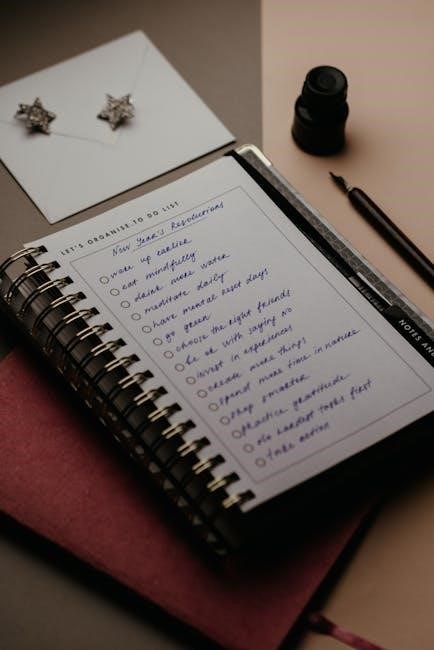 LET'S ORGANISE: TO DO LIST
New Year's Resolutions
wake up earlier
eat mindfully
drink more water
meditate daily
have mental reset days
go green
choose the right friends
be ok with saying no
invest in experiences
create more things
spend more time in nature
shop smarter
practice gratitude
do hardest tasks first
take action
NOTES AN